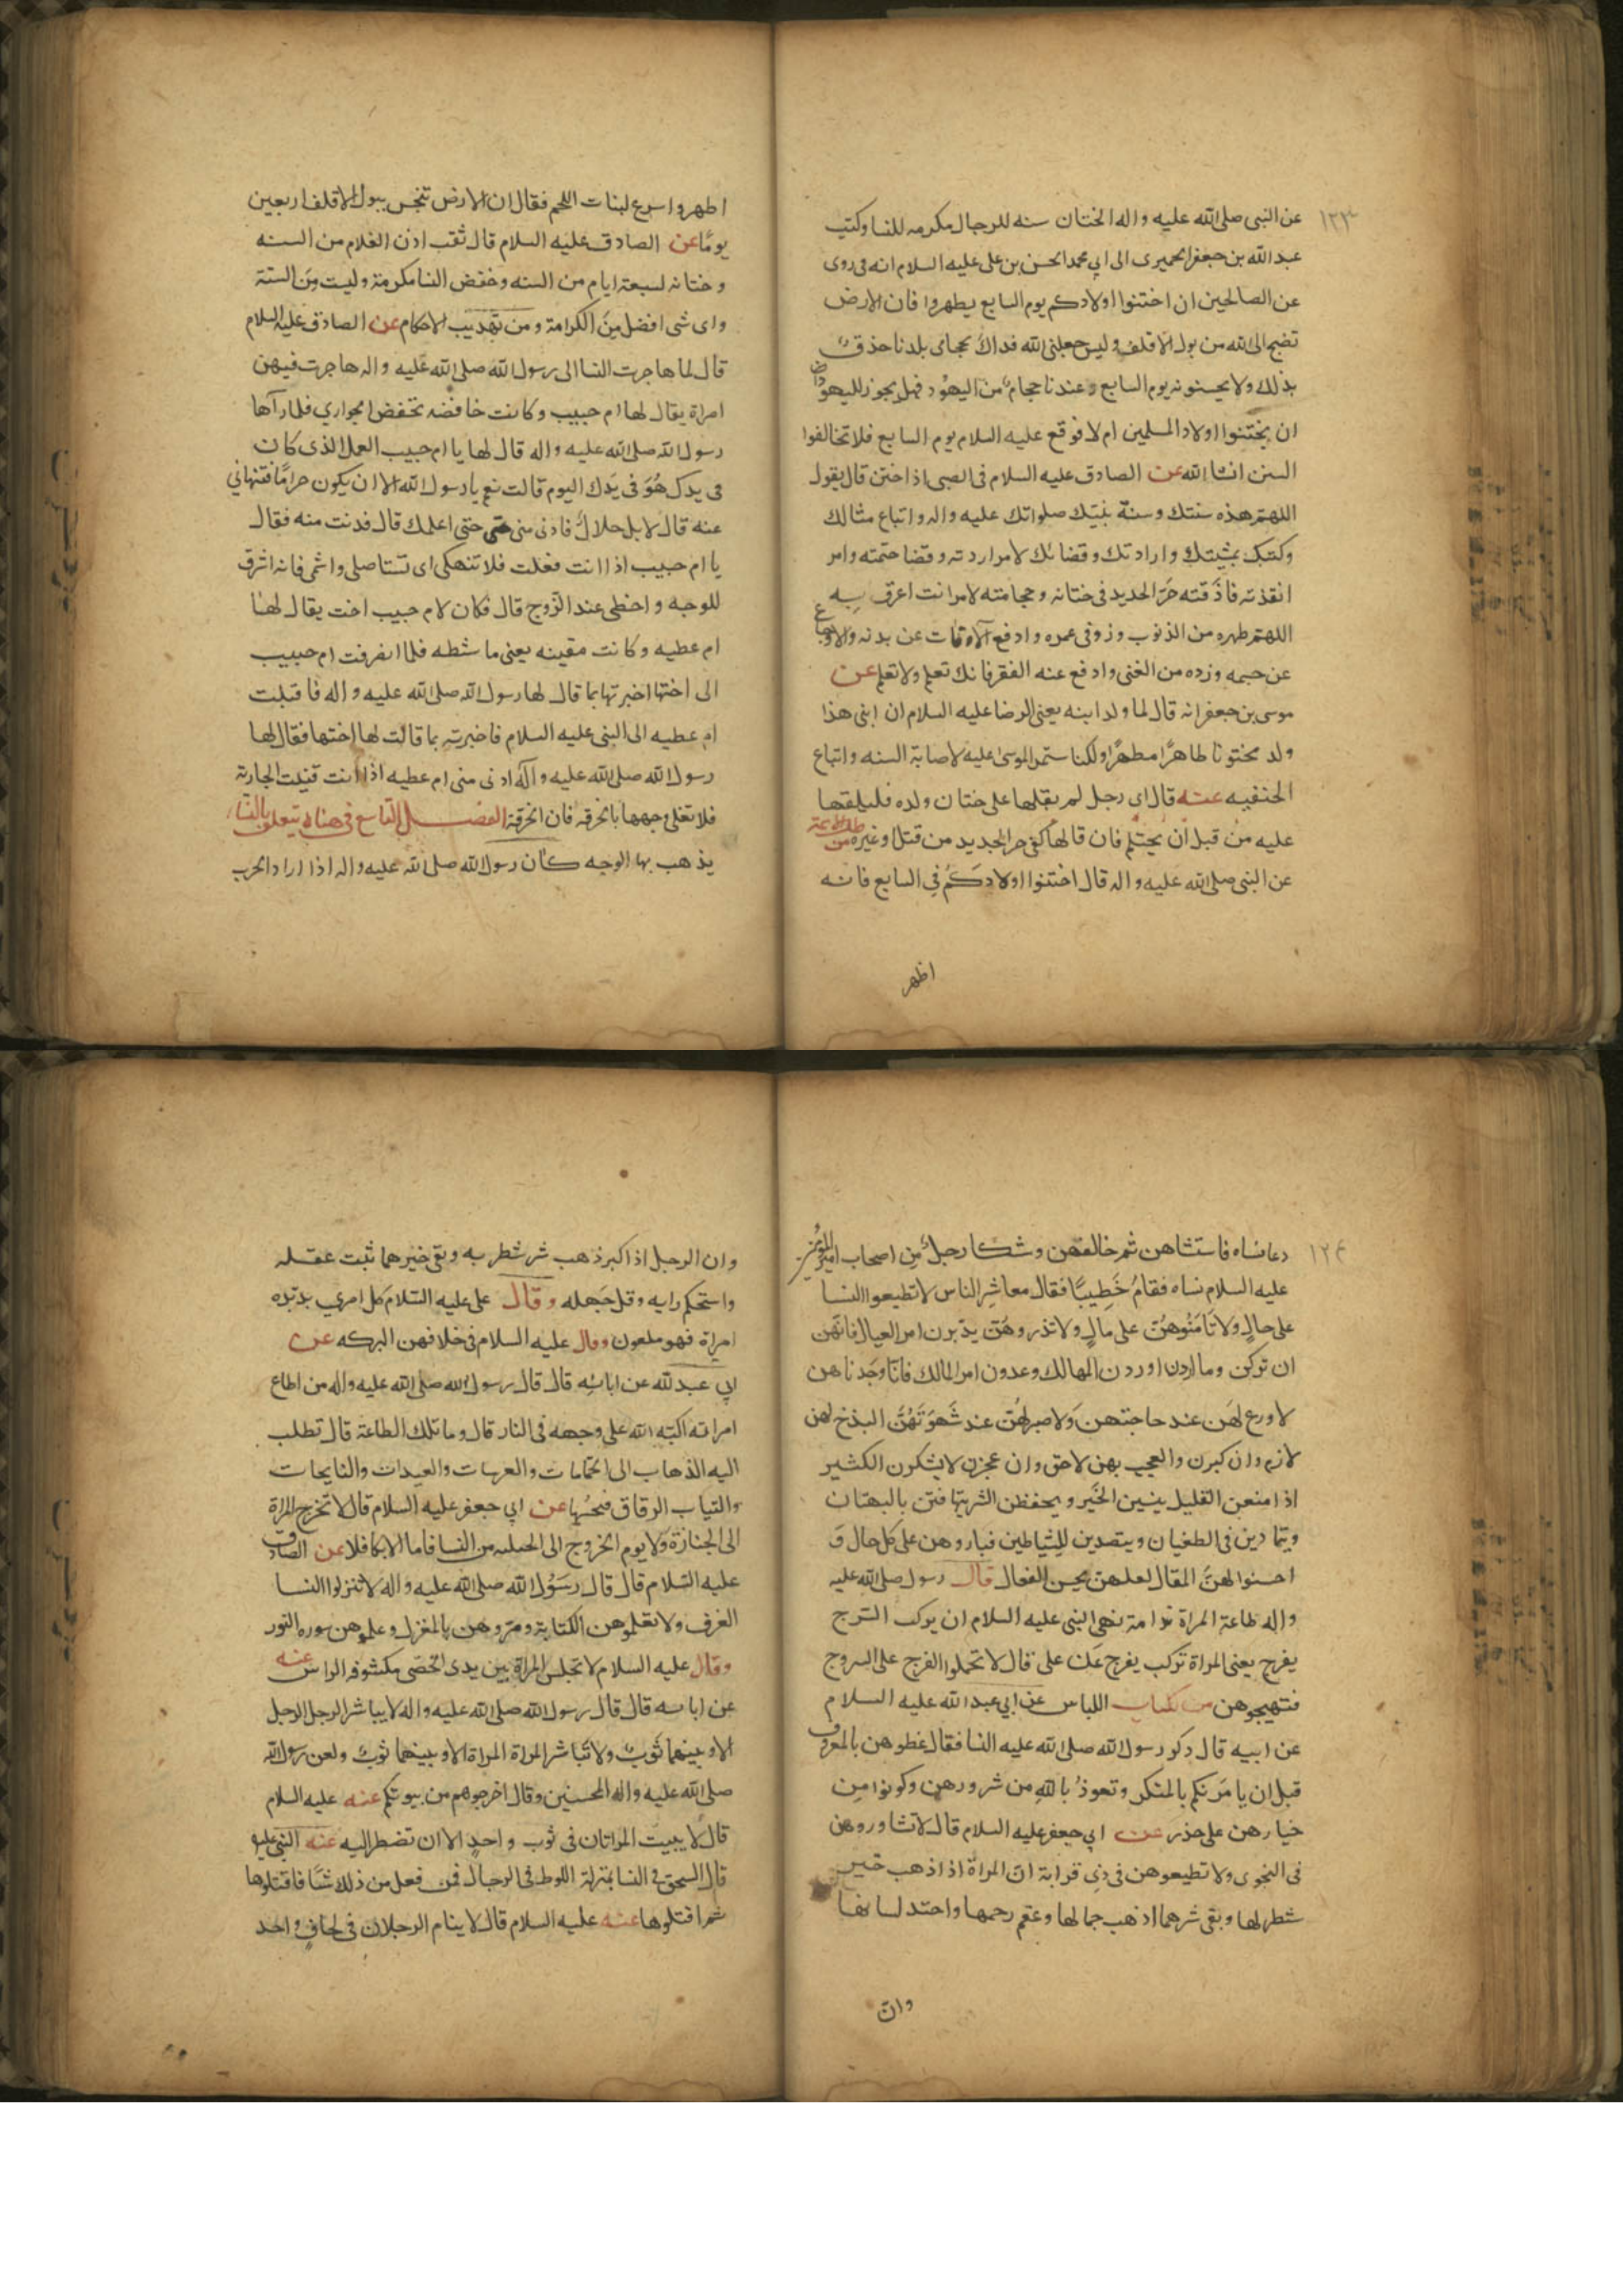 ١٢٣
عن النبى صلى الله عليه واله الختان سنه للرجال مكرمه للنسا وكتب
عبد الله بن جعفر الحميرى الى ابي محمد الحسن بن على عليه السلام انه قد روى
عن الصالحين ان اختنوا اولادكم يوم السابع يطهروا فان الارض
تضج الى الله من بول الاقلف وليس جعلنى الله فداك لحجامى بلدنا حذق
بذلك ولا يحسنونه يوم السابع وعندنا حجام من اليهود فهل يجوز لليهود
ان يختنوا اولاد المسلمين ام لا فوقع عليه السلام يوم السابع فلا تخالفوا
السنن انشا الله عن الصادق عليه السلام فى الصبى اذا ختن قال يقول
اللهم هذه سنتك وسنة نبيك صلواتك عليه واله واتباع مثالك
وكتبك بمشيتك وارادتك وقضائك لامر اردته وقضا حتمته وامر
انفذته فاذقته حر الحديد فى ختانه وحجامته لامر انت اعرف به
اللهم طهره من الذنوب وزد فى عمره وادفع الافات عن بدنه والاوجاع
عن جسمه وزده من الغنى وادفع عنه الفقر فانك تعلم ولا نعلم عن
موسى بن جعفر انه قال لما ولد ابنه يعنى الرضا عليه السلام ان ابنى هذا
ولد مختونا طاهرا مطهرا ولكنا ستمر الموسى عليه لاصابة السنه واتباع
الحنفيه عنه قال اى رجل لم يقلها على ختان ولده فليقلها
عليه من قبل ان يحتلم فان قالها كفى حر الحديد من قتل او غيره من
عن النبى صلى الله عليه واله قال اختنوا اولادكم فى السابع فانه
اطهر
اطهر واسرع لنبات اللحم فقال ان الارض تنجس ببول الاقلف اربعين
يوما عن الصادق عليه السلام قال ثقب اذن الغلام من السنه
وختانه لسبعة ايام من السنه وخفض النسا مكرمة وليست من السنة
واى شى افضل من الكرامة ومن تهذيب الاحكام عن الصادق عليه السلام
قال لما هاجرت النسا الى رسول الله صلى الله عليه واله هاجرت فيهن
امراة يقال لها ام حبيب وكانت خافضه تخفض الجوارى فلما رآها
رسول الله صلى الله عليه واله قال لها يا ام حبيب العمل الذى كان
فى يدك هو فى يدك اليوم قالت نعم يا رسول الله الا ان يكون حراما فتنهانى
عنه قال لا بل حلال فادنى منى حتى حتى اعلمك قال فدنت منه فقال
يا ام حبيب اذا انت فعلت فلا تنهكى اى تستاصلى واشمى فانه اشرق
للوجه واحظى عند الزوج قال فكان لام حبيب اخت يقال لها
ام عطيه وكانت مقينه يعنى ماشطه فلما انصرفت ام حبيب
الى اختها اخبرتها بما قال لها رسول الله صلى الله عليه واله فاقبلت
ام عطيه الى النبى عليه السلام فاخبرته بما قالت لها اختها فقال لها
رسول الله صلى الله عليه وآله ادنى منى ام عطيه اذا انت قنيت الجارية
فلا تغلى وجهها بالخرقه فان الخرقة الفصل التاسع فى هناة تتعلق بالنسا
يذهب بها الوجه كان رسول الله صلى الله عليه واله اذا اراد الحرب
١٢٤
دعا نساه فاستشاهن ثم خالفهن وشكا رجل من اصحاب امير المؤمنين
عليه السلام نساه فقام خطيبا فقال معاشر الناس لا تطيعوا النسا
على حال ولا تامنوهن على مال ولا تذروهن يدبرن امر العيال فانهن
ان تركن وما اردن اوردن المهالك وعدون امر المالك فانا وجدناهن
لا ورع لهن عند حاجتهن ولا صبر لهن عند شهوتهن البذخ لهن
لازم وان كبرن والعجب بهن لاحق وان عجزن لا يشكرن الكثير
اذا منعن القليل ينسين الخير ويحفظن الشر يتهافتن بالبهتان
ويتمادين فى الطغيان ويتصدين للشياطين فداروهن على كل حال و
احسنوا لهن المقال لعلهن يحسن الفعال قال رسول صلى الله عليه
واله طاعة المراة ندامة نهى النبى عليه السلام ان يركب السرج
بفرج يعنى المراة تركب بفرج عن على قال لا تحملوا الفرج على السروج
فتهيجوهن من كتاب اللباس عن ابي عبد الله عليه السلام
عن ابيه قال ذكر رسول الله صلى الله عليه النسا فقال عظوهن بالمعروف
قبل ان يامرنكم بالمنكر وتعوذ بالله من شرورهن وكونوا من
خيارهن على حذر عن ابي جعفر عليه السلام قال لا تشاوروهن
فى النجوى ولا تطيعوهن فى ذى قرابة ان المراة اذا ذهب خير
شطرها وبقى شرهما اذهب جمالها وعقم رحمها واحتد لسانها
وان
وان الرجل اذا كبر ذهب شر شطريه وبقى خيرهما ثبت عقله
واستحكم رايه وقل جهله وقال على عليه السلام كل امرى يدبره
امراة فهو ملعون وقال عليه السلام فى خلافهن البركه عن
ابي عبد الله عن ابائه قال قال رسول الله صلى الله عليه واله من اطاع
امراته اكبه الله على وجهه فى النار قال وما تلك الطاعة قال تطلب
اليه الذهاب الى الحمامات والعرسات والعيدات والنايحات
والثياب الرقاق فيجيبها عن ابي جعفر عليه السلام قال لا تخرج المراة
الى الجنازة ولا يوم الخروج الى من النسا فاما الابكار فلا عن الصادق
عليه السلام قال قال رسول الله صلى الله عليه واله لا تنزلوا النسا
الغرف ولا تعلموهن الكتابة ومروهن بالمغزل وعلموهن سورة النور
وقال عليه السلام لا تجلس المراة بين يدى الخصى مكشوفة الراس عنه
عن ابائه قال قال رسول الله صلى الله عليه واله لا يباشر الرجل الرجل
الا وبينهما ثوب ولا تباشر المراة المراة الا وبينهما ثوب ولعن رسول الله
صلى الله عليه واله المخنثين وقال اخرجوهم من بيوتكم عنه عليه السلام
قال لا يبيت المراتان فى ثوب واحد الا ان تضطر اليه عنه النبى عليه
قال السحق فى النسا بمنزلة اللوط فى الرجال فمن فعل من ذلك شيا فاقتلوها
ثم اقتلوها عنه عليه السلام قال لا ينام الرجلان فى لحاف واحد